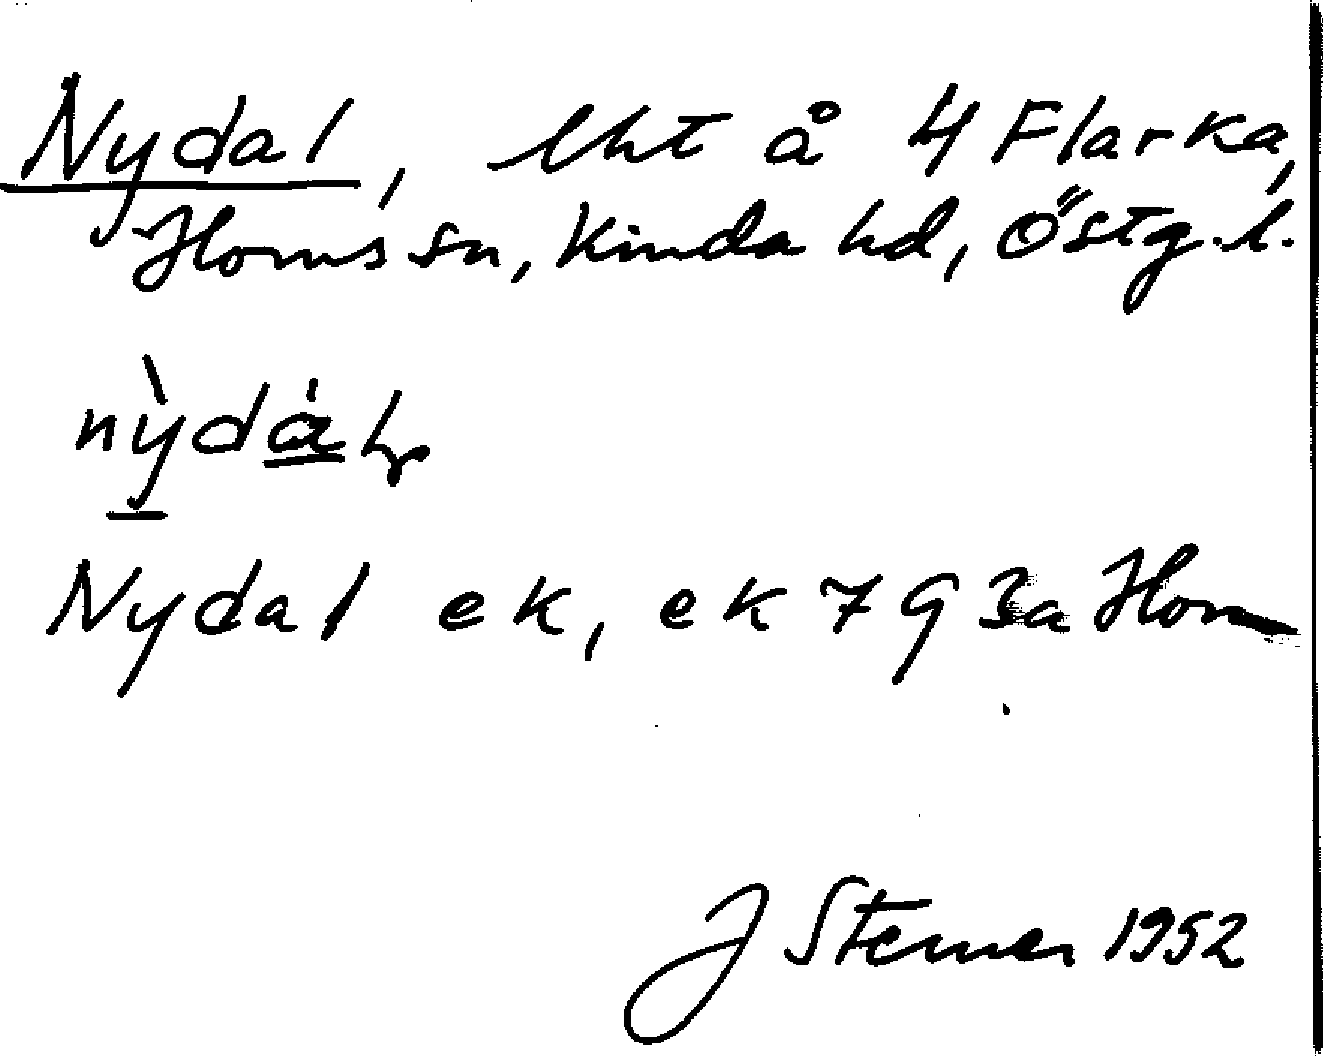 Nydal, lht å 4 Flarka,
Horns sn, Kinda hd, Östg.l.
nỳdàl
Nydal ek, ek 7 G 3a Horn
J Sterner 1952